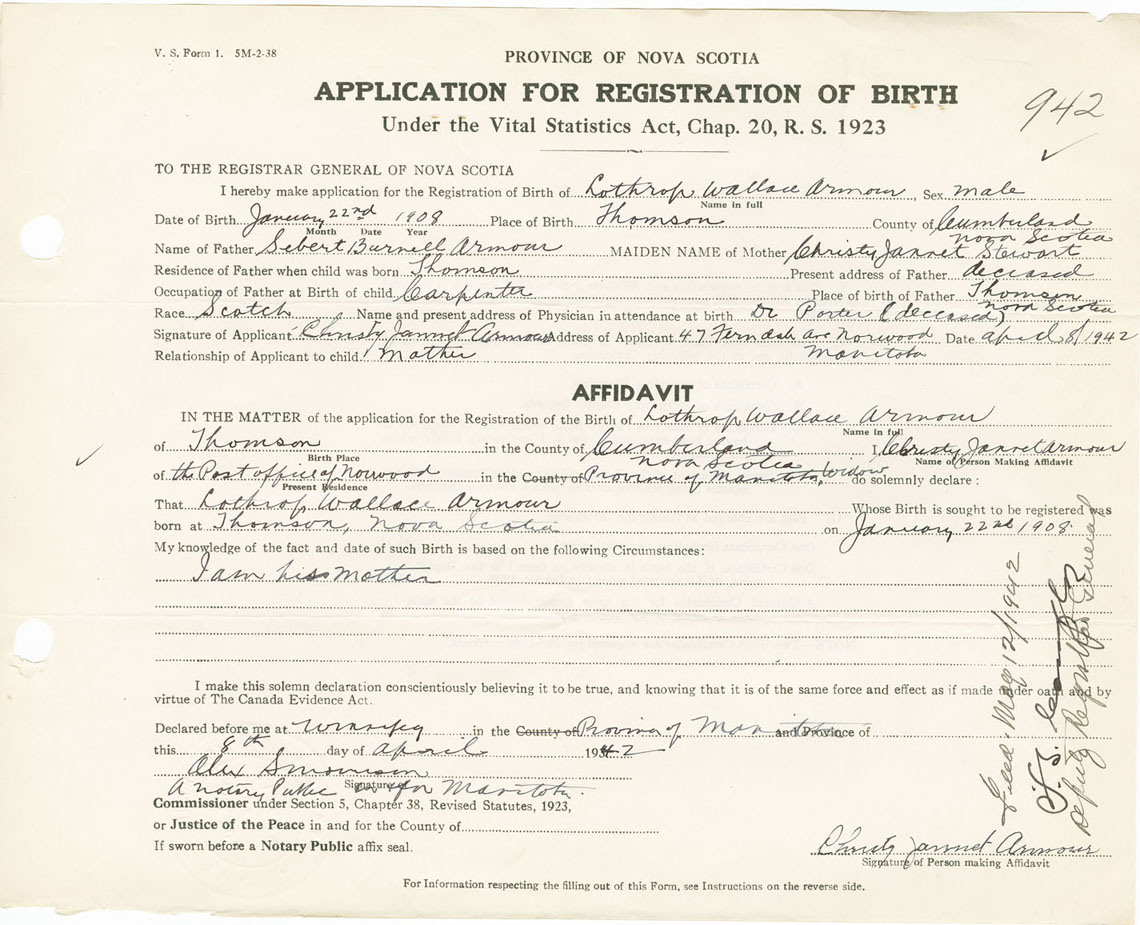 V. S. Form 1. 5M-2-38
PROVINCE OF NOVA SCOTIA
APPLICATION FOR REGISTRATION OF BIRTH
942
Under the Vital Statistics Act, Chap. 20, R. S. 1923
TO THE REGISTRAR GENERAL OF NOVA SCOTIA
I hereby make application for the Registration of Birth of Lothrop Wallace Armour, Sex male
Name in full
Date of Birth January 22nd 1908 Place of Birth Thomson County of Cumberland
Month Date Year
Nova Scotia
Name of Father Sebert Burnell Armour MAIDEN NAME of Mother Christy Jannet Stewart
Residence of Father when child was born Thomson Present address of Father deceased
Occupation of Father at Birth of child Carpenter Place of birth of Father Thomson
Nova Scotia
Race Scotch Name and present address of Physician in attendance at birth Dr Porter (deceased)
Signature of Applicant Christy Jannet Armour Address of Applicant 47 Ferndale ave Norwood Date april 8/1942
Manitoba
Relationship of Applicant to child Mother
AFFIDAVIT
IN THE MATTER of the application for the Registration of the Birth of Lothrop Wallace Armour
Name in full
of Thomson in the County of Cumberland I, Christy Jannet Armour
Birth Place
Nova Scotia
Name of Person Making Affidavit
of the Post office of Norwood in the County of Province of Manitoba, Widow do solemnly declare :
Present Residence
That Lothrop Wallace Armour Whose Birth is sought to be registered was
born at Thomson, Nova Scotia on January 22nd 1908.
My knowledge of the fact and date of such Birth is based on the following Circumstances:
I am his Mother
I make this solemn declaration conscientiously believing it to be true, and knowing that it is of the same force and effect as if made under oath and by
virtue of The Canada Evidence Act.
Declared before me at Winnipeg in the County of Province of Manitoba and Province of
this 8th day of april 1942
Alex
Signature
A notary Public for Manitoba.
Commissioner under Section 5, Chapter 38, Revised Statutes, 1923,
or Justice of the Peace in and for the County of
If sworn before a Notary Public affix seal.
Christy Jannet Armour
Signature of Person making Affidavit
For Information respecting the filling out of this Form, see Instructions on the reverse side.
Filed May 12/1942
Deputy Registrar General